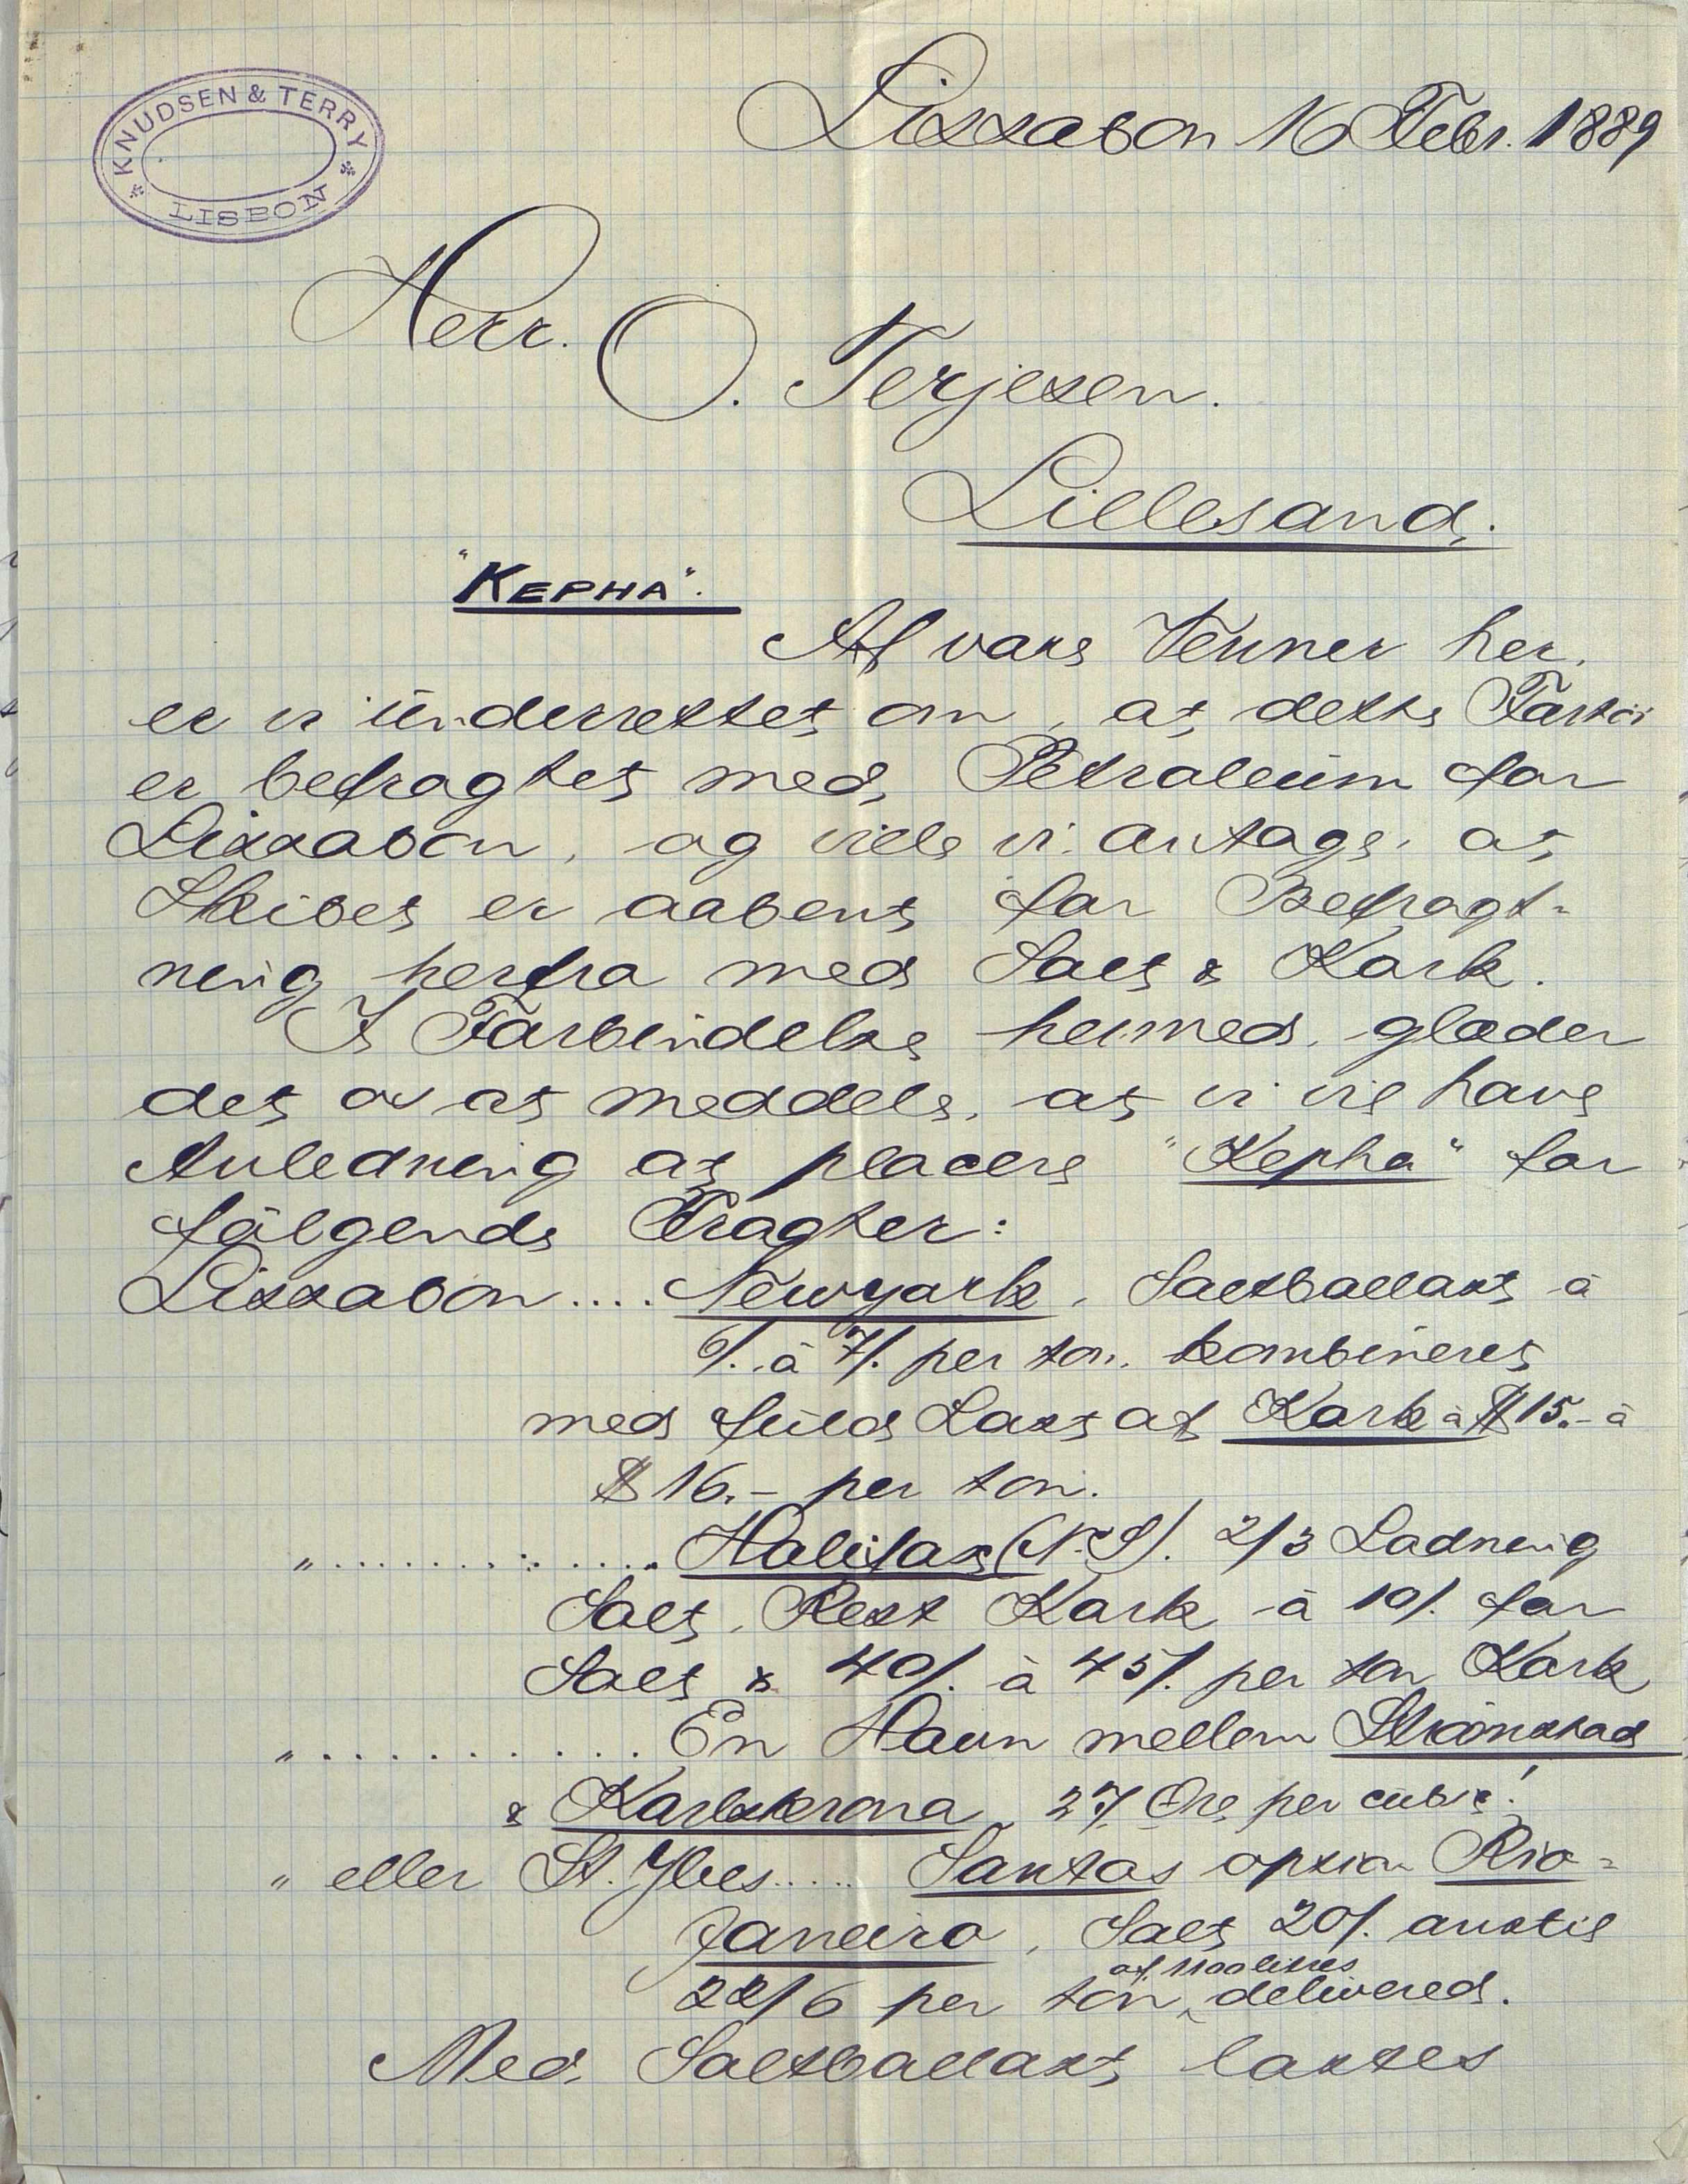 KNUDSEN & TERRY
LISBON
Lissabon 16 Febr. 1889
Herr.
O. Terjesen.
Lillesand.
"KEPHA".
Af vore Venner her,
er vi underrettet om, at dette Fartöi
er befragtet med Petroleum for
Lissabon, og ville vi antage, at
Skibet er aabent for Befragt-
ning herfra med Salt & Kork.
I Forbindelse hermed, glæder
det os at meddele, at vi vil have
Anledning at placere "Kepha" for
fölgende Fragter:
Lissabon.... Newyork, Saltballast à
6/. à 7/. per ton, kombineret
med fuld Last af Kork à $15.- à
$16.- per ton.
" ............ Halifax (N.S). 2/3 Ladning
Salt, Rest Kork à 10/. for
Salt & 40/. à 45/. per ton Kork
" ............ En Havn mellem Strömstad
& Karlskrona, 27 Öre per cubic'!
" eller St. Ybes..... Santos option Rio-
Janeiro, Salt 20/. indtil
22/6 per ton of 1100 litres delivered.
Med Saltballast lastes